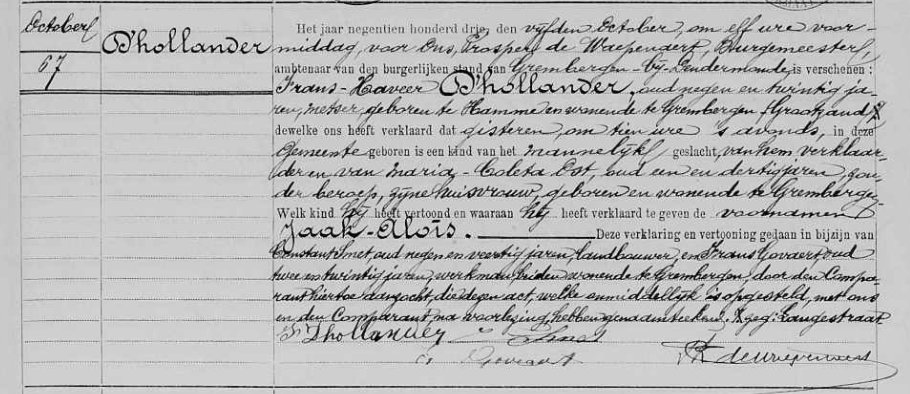 October
67
D'hollander
Het jaar negentien honderd drie, den vyfden October, om elf ure voor-
middag, voor Ons, Prosper de Waepenaert, Burgemeester,
ambtenaar van den burgerlijken stand van Grembergen-by-Dendermonde, is verschenen:
Frans-Xaveer D'hollander, oud negen en twintig ja-
ren, metser, geboren te Hamme en wonende te Grembergen
dewelke ons heeft verklaard dat gisteren, om tien ure 's avonds, in deze
Gemeente geboren is een kind van het mannelyk geslacht, van hem verklaar-
der en van Maria-Coleta Ost, oud een en dertig jaren, zon-
der beroep, zyne huisvrouw, geboren en wonende te Grembergen
Welk kind hy heeft vertoond en waaraan hy heeft verklaard te geven de voornamen
Jaak-Aloïs. Deze verklaring en vertooning gedaan in bijzijn van
Constant Smet oud negen en veertig jaren, landbouwer, en Frans Govaert oud
twee en twintig jaren, werkman, beiden wonende te Grembergen, door den Compa-
rant hiertoe aanzocht, die dezen act, welke onmiddellyk is opgesteld, met ons
en den Comparant na voorlezing, hebben genaamteekend. geg: Langestraat
F. Dhollander Smet
F. Govaert de Waepenaert